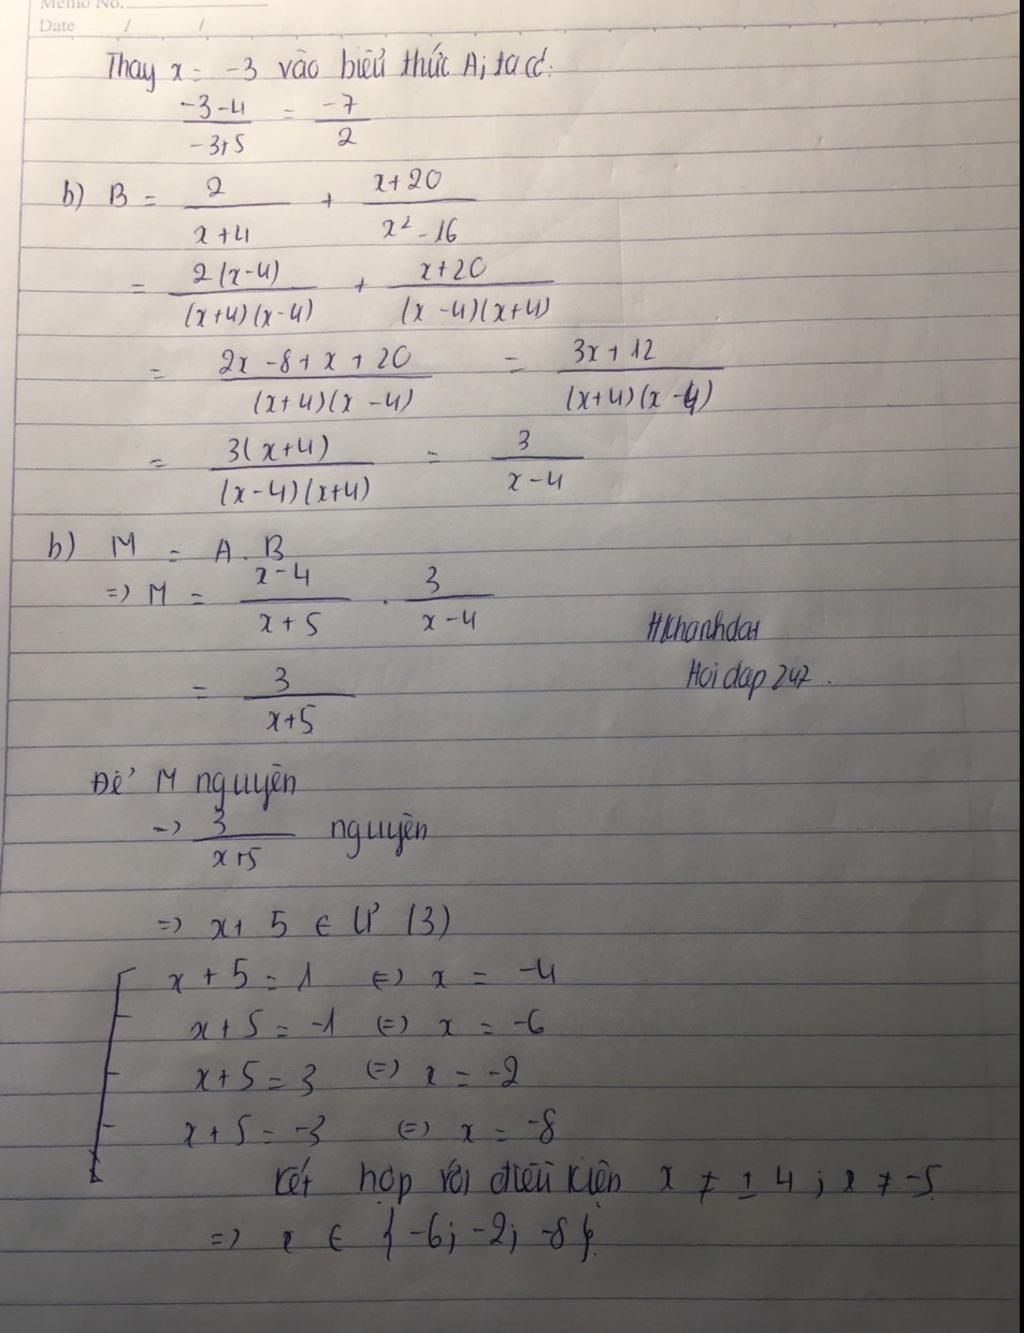 Memo No.
Date / /
Thay x = -3 vào biểu thức A, ta có:
-3-4 / -3+5 = -7 / 2
b) B = 2 / x+4 + x+20 / x² - 16
= 2(x-4) / (x+4)(x-4) + x+20 / (x-4)(x+4)
= 2x -8 + x + 20 / (x+4)(x-4) = 3x + 12 / (x+4)(x-4)
= 3(x+4) / (x-4)(x+4) = 3 / x-4
b) M = A . B
=> M = x-4 / x+5 . 3 / x-4
= 3 / x+5
#Khanhdat
Hoidap 247.
Để M nguyên
=> 3 / x+5 nguyên
=> x + 5 ∈ Ư (3)
x + 5 = 1 <=> x = -4
x + 5 = -1 <=> x = -6
x + 5 = 3 <=> x = -2
x + 5 = -3 <=> x = -8
Kết hợp với điều kiện x ≠ ± 4 ; x ≠ -5
=> x ∈ { -6; -2; -8 }.